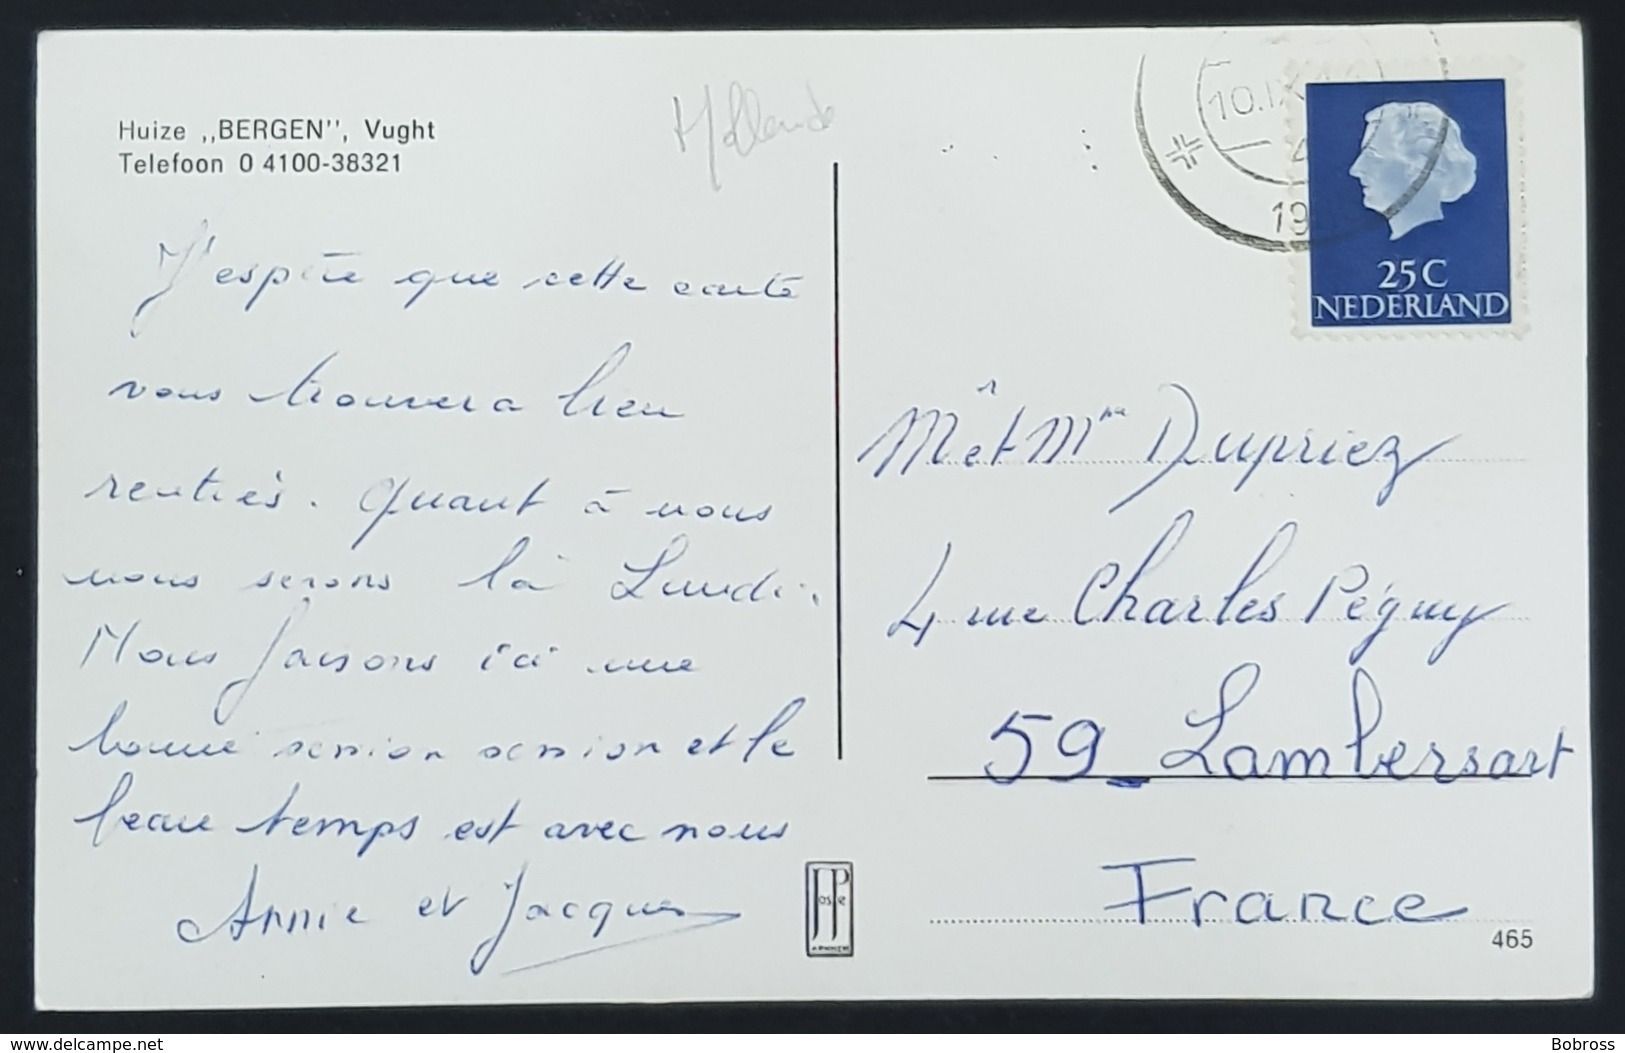 Huize ,,BERGEN'', Vught
Telefoon 0 4100-38321
Hollande
J'espère que cette carte
vous trouvera bien
rentrés. Quant à nous
nous serons là Lundi.
Nous faisons ici une
bonne session session et le
beau temps est avec nous
Annie et Jacques
10.IX
19
25C
NEDERLAND
Mr et Mme Dupriez
4 rue Charles Péguy
59_Lambersart
France
JosPé
ARNHEM
465
www.delcampe.net
Bobross